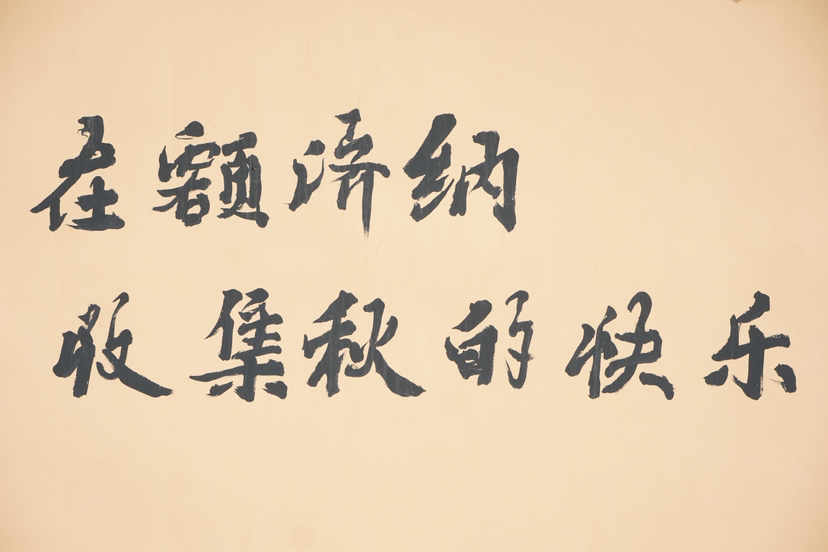 在额济纳
收集秋的快乐